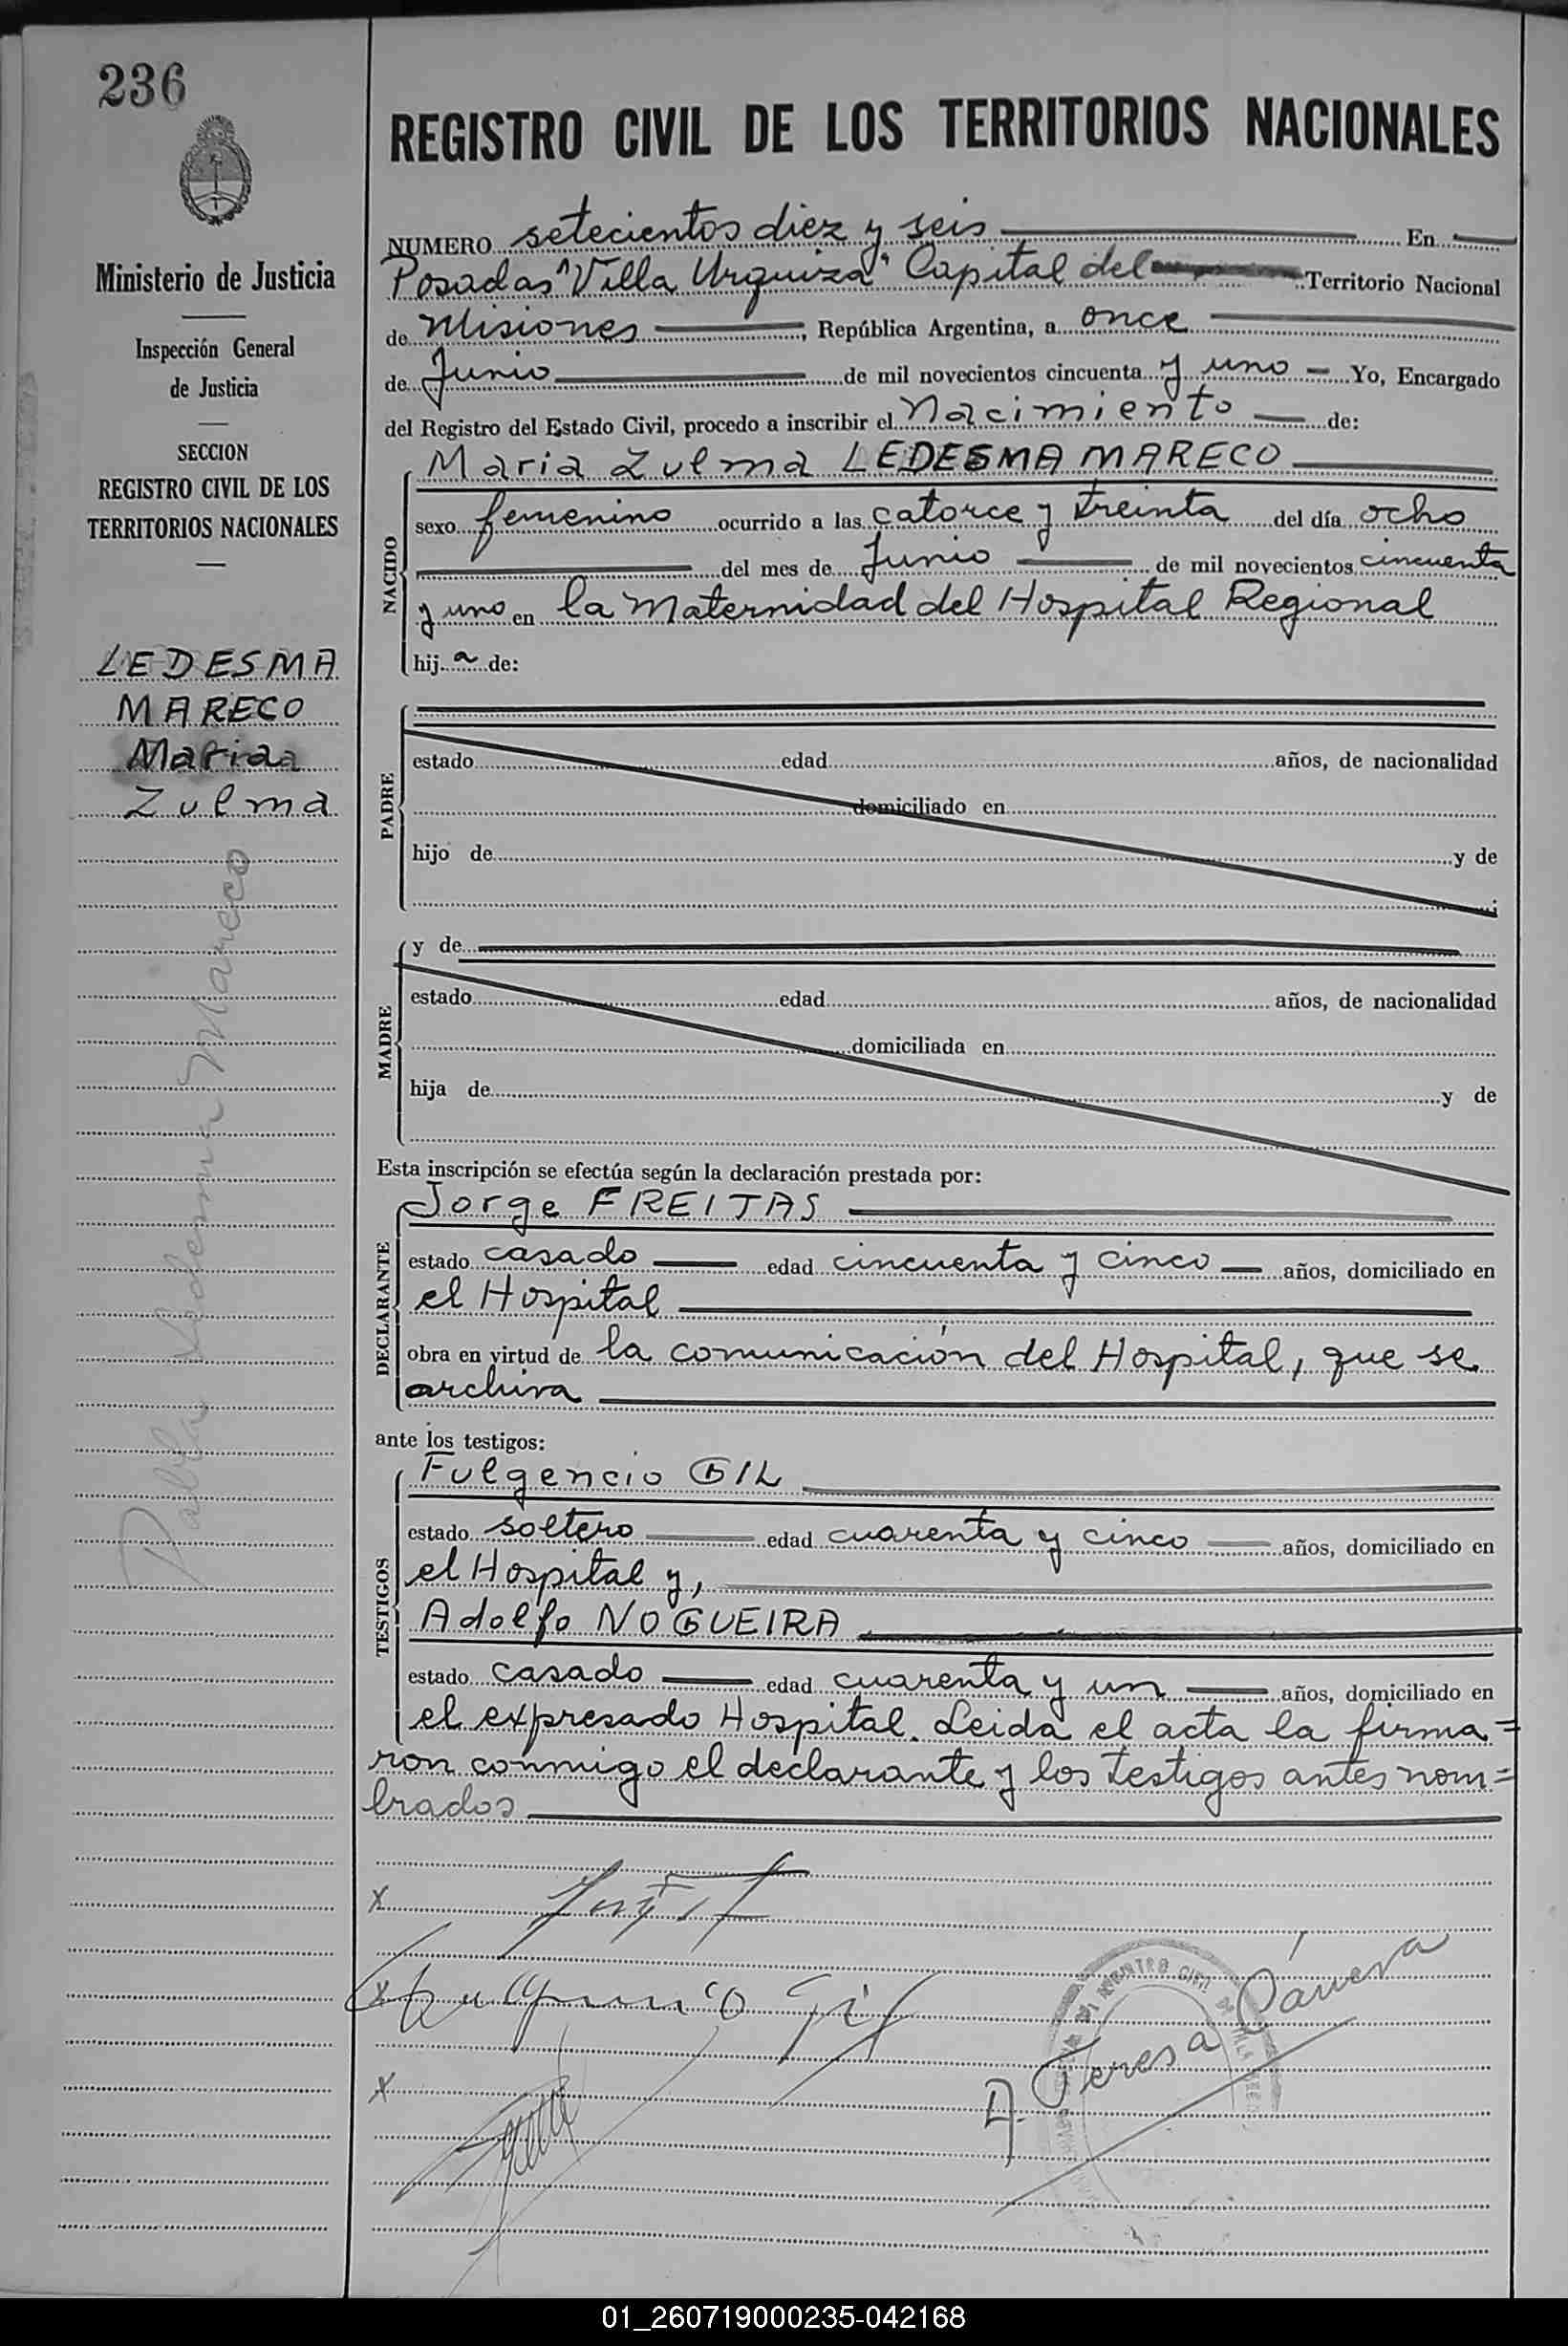 236
Ministerio de Justicia
Inspección General
de Justicia
SECCION
REGISTRO CIVIL DE LOS
TERRITORIOS NACIONALES
LEDESMA
MARECO
Maria
Zulma
Ledesma Mareco
REGISTRO CIVIL DE LOS TERRITORIOS NACIONALES
NUMERO setecientos diez y seis En
Posadas "Villa Urquiza" Capital del Territorio Nacional
de Misiones, República Argentina, a once
de Junio de mil novecientos cincuenta y uno Yo, Encargado
del Registro del Estado Civil, procedo a inscribir el Nacimiento de:
Maria Zulma LEDESMA MARECO
NACIDO
sexo femenino ocurrido a las catorce y treinta del día ocho
del mes de Junio de mil novecientos cincuenta
y uno en la Maternidad del Hospital Regional
hij a de:
PADRE
estado edad años, de nacionalidad
domiciliado en
hijo de y de
MADRE
y de
estado edad años, de nacionalidad
domiciliada en
hija de y de
Esta inscripción se efectúa según la declaración prestada por:
DECLARANTE
Jorge FREITAS
estado casado edad cincuenta y cinco años, domiciliado en
el Hospital
obra en virtud de la comunicación del Hospital, que se
archiva
ante los testigos:
TESTIGOS
Fulgencio GIL
estado soltero edad cuarenta y cinco años, domiciliado en
el Hospital y,
Adolfo NOGUEIRA
estado casado edad cuarenta y un años, domiciliado en
el expresado Hospital. Leida el acta la firma=
ron conmigo el declarante y los testigos antes nom=
brados
x
x Fulgencio Gil
x
A. Teresa
01_260719000235-042168